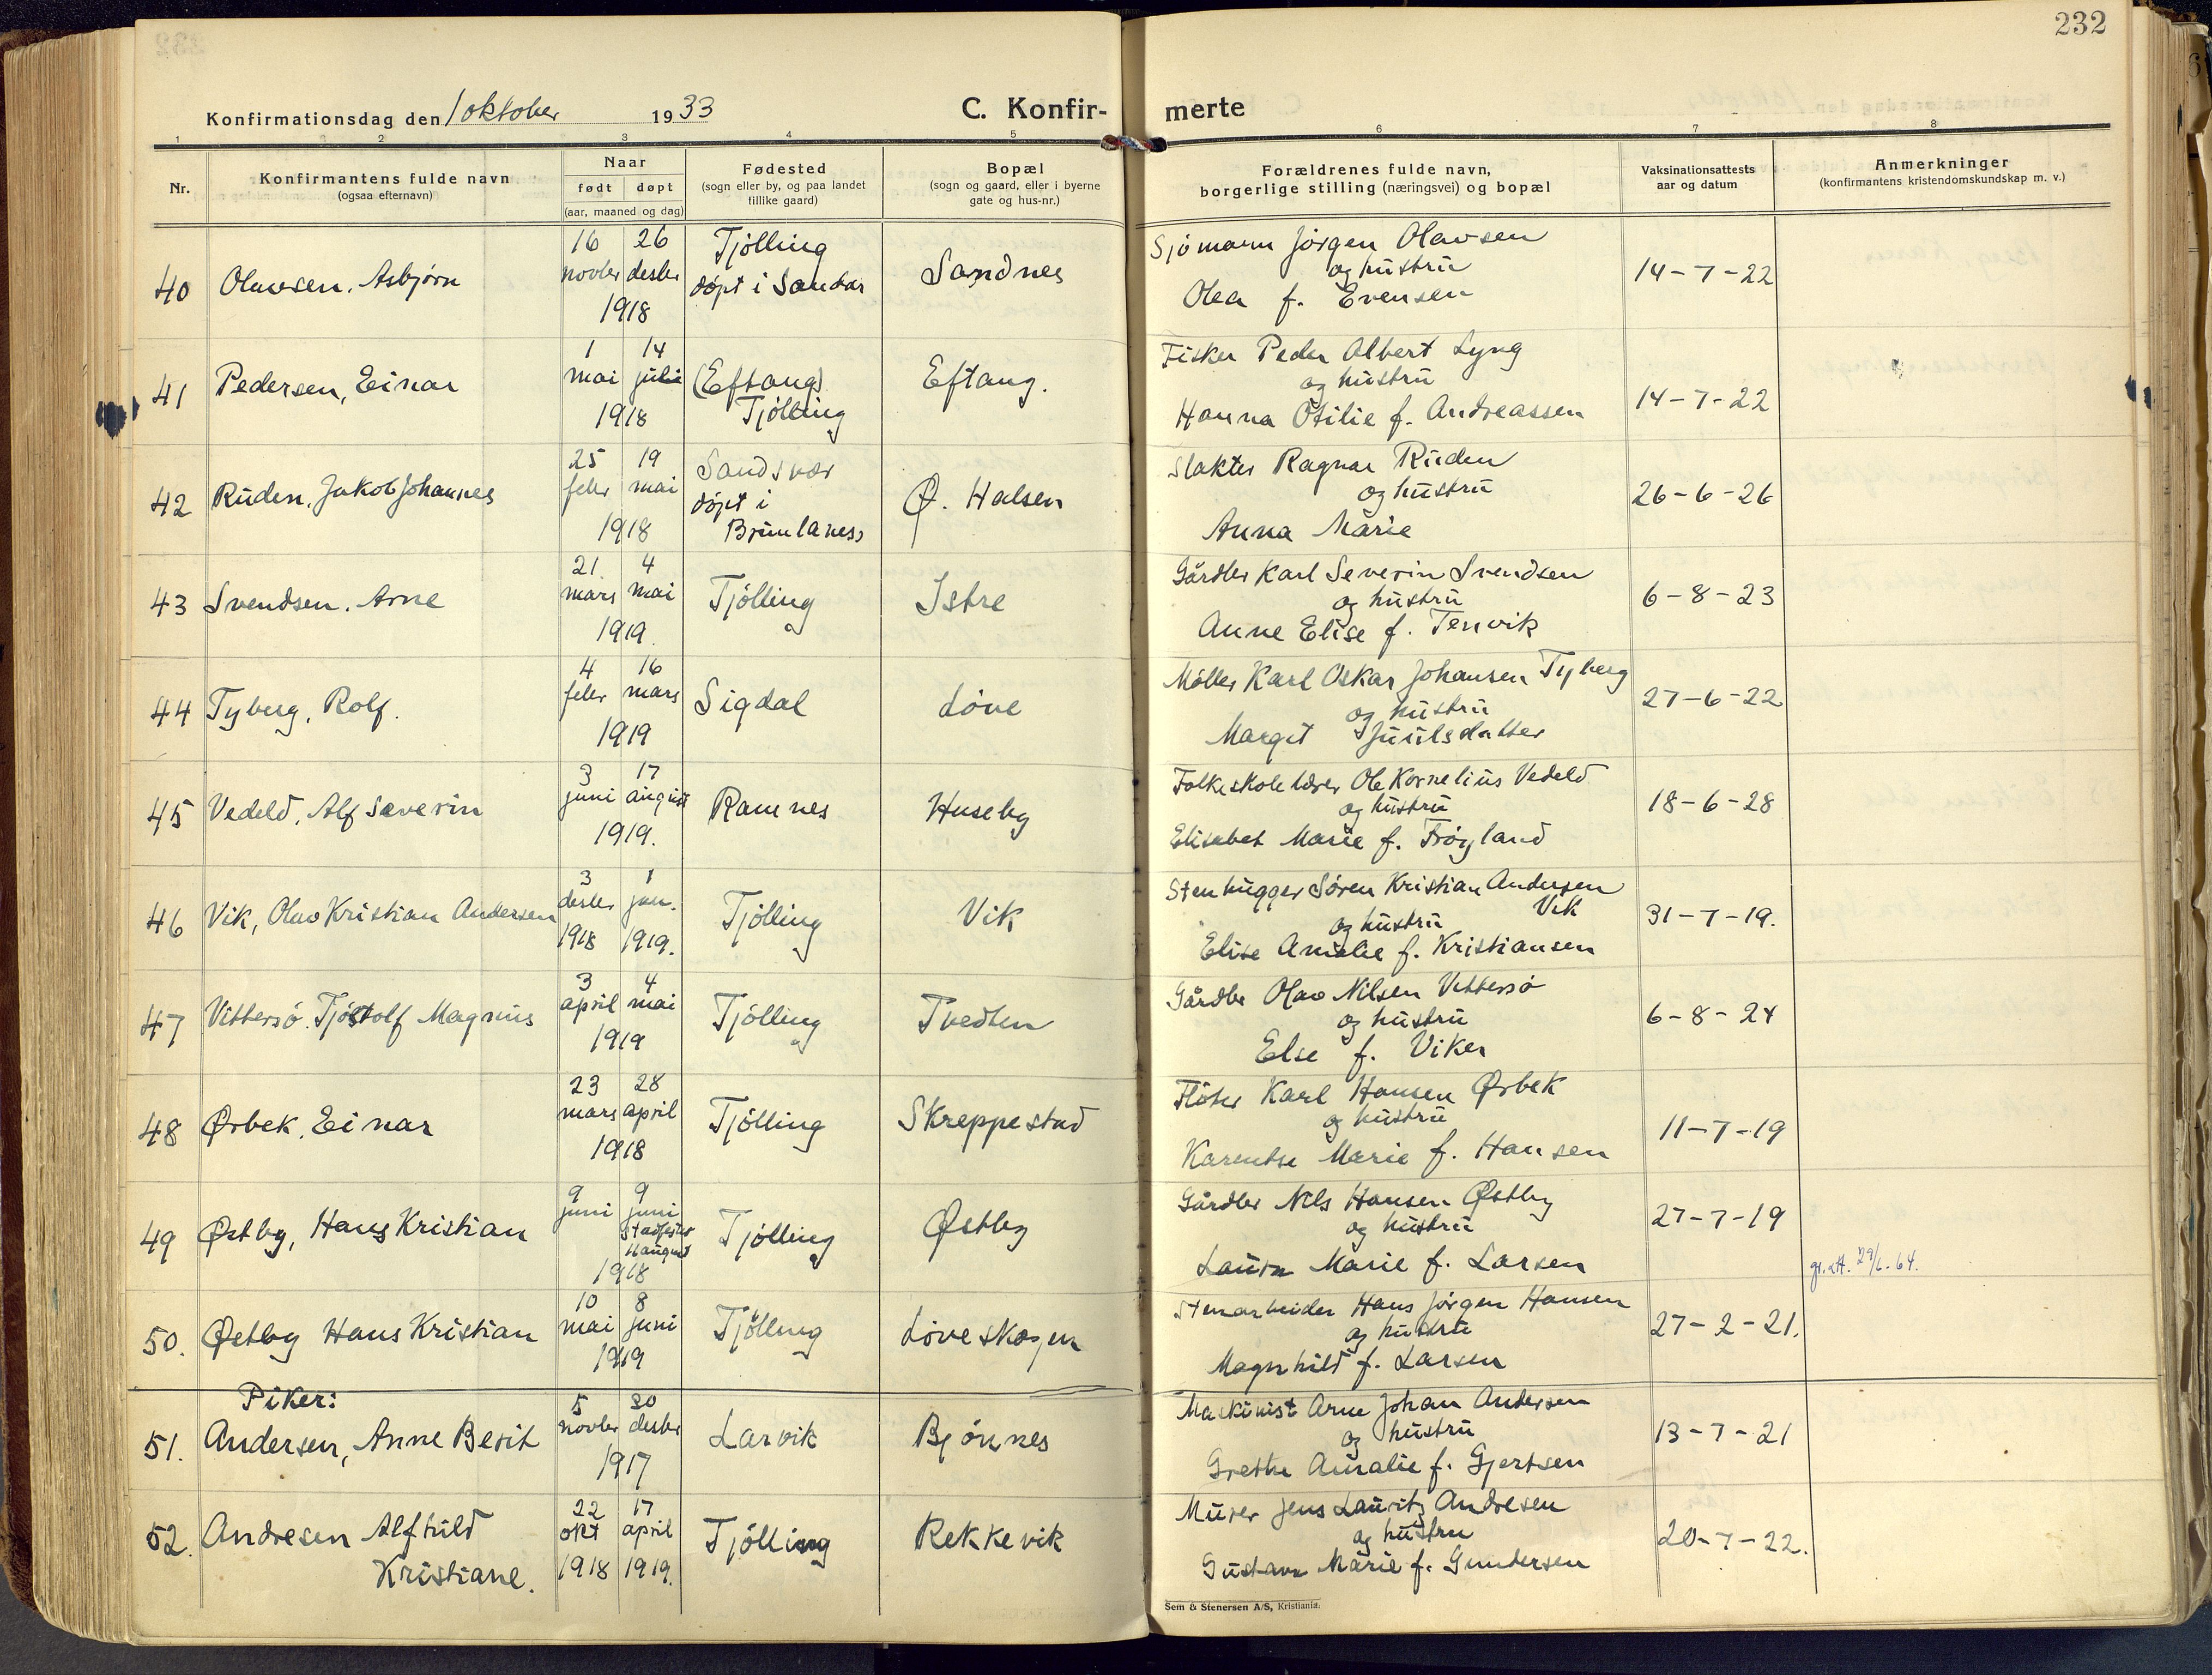 232
Konfirmationsdag den 1 oktober 1933
C. Konfir-
merte
1 2 3 4 5 6 7 8
Nr.
Konfirmantens fulde navn
(ogsaa efternavn)
Naar
født døpt
(aar, maaned og dag)
Fødested
(sogn eller by, og paa landet
tillike gaard)
Bopæl
(sogn og gaard, eller i byerne
gate og hus-nr.)
Forældrenes fulde navn,
borgerlige stilling (næringsvei) og bopæl
Vaksinationsattests
aar og datum
Anmerkninger
(konfirmantens kristendomskundskap m. v.)
40 Olavsen, Asbjørn
16 novbr 26 desbr
1918
Tjølling
døpt i Sandar
Sandnes
Sjømann Jörgen Olavsen
og hustru
Olea f. Evensen
14-7-22
41 Pedersen, Einar
1 mai 14 juli
1918
(Eftang)
Tjølling
Eftang.
Fisker Peder Albert Lyng
og hustru
Hanna Otilie f. Andreassen
14-7-22
42 Ruden, Jakob Johannes
25 febr 19 mai
1918
Sandsvær
døpt i
Brunlanes
Ø. Halsen
Slakter Ragnar Ruden
og hustru
Anna Marie
26-6-26
43 Svendsen, Arne
21. mars 4 mai
1919.
Tjølling
Istre
Gårdbr Karl Severin Svendsen
og hustru
Anne Elise f. Tenvik
6-8-23
44 Tyberg, Rolf.
4 febr 16 mars
1919
Sigdal
Løve
Møller Karl Oskar Johansen Tyberg
og hustru
Margit Juulsdatter
27-6-22
45 Vedeld, Alf Severin
3 juni 17 august
1919.
Ramnes
Huseby
Folkeskolelærer Ole Kornelius Vedeld
og hustru
Elisabet Marie f. Frøyland
18-6-28
46 Vik, Olav Kristian Andersen
3 desbr 1 jan.
1918 1919.
Tjølling
Vik
Stenhugger Søren Kristian Andersen
Vik
og hustru
Elise Amalie f. Kristiansen
31-7-19.
47 Vittersø, Tjøstolf Magnus
3 april 4 mai
1919
Tjølling
Tvedten
Gårdbr Olav Nilsen Vittersø
og hustru
Else f. Viker
6-8-24
48 Ørbek, Einar
23 mars 28 april
1918
Tjølling
Skreppestad
Fløter Karl Hansen Ørbek
og hustru
Karentse Marie f. Hansen
11-7-19
49 Østby, Hans Kristian
9 juni 9 juni
1918
Tjølling
Østby
Gårdbr Nils Hansen Østby
og hustru
Laura Marie f. Larsen
27-7-19
50. Østby Hans Kristian
10 mai 8 juni
1919
Tjølling
Løveskogen
Stenarbeider Hans Jörgen Hansen
og hustru
Magnhild f. Larsen
27-2-21.
Piker:
51. Andersen, Anne Berit
5 novbr 30 desbr
1917
Larvik
Bjønnes
Maskinist Arne Johan Andersen
og hustru
Grethe Amalie f. Gjertsen
13-7-21
52. Andresen Alfhild
Kristiane.
22 okt 17 april
1918 1919.
Tjølling
Rekkevik
Murer Jens Lauritz Andresen
og hustru
Gustava Marie f. Gundersen
20-7-22.
Sem & Stenersen A/S, Kristiania.